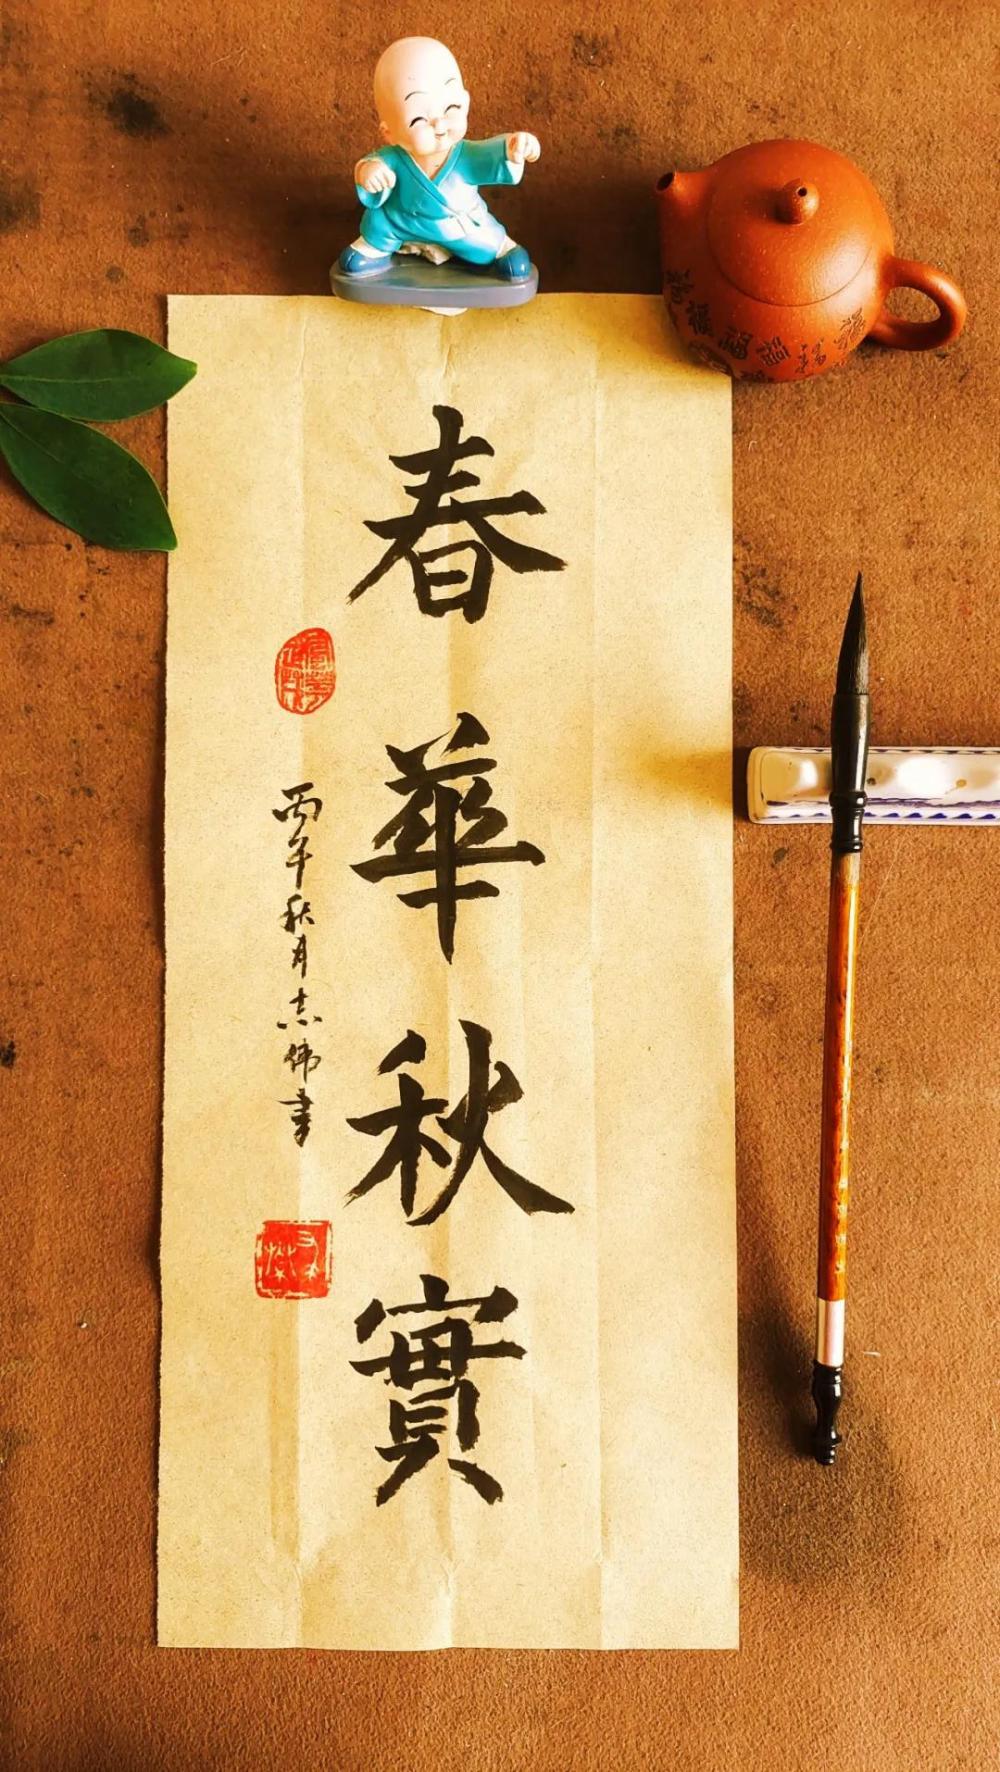 春華秋實
丙午秋月志偉書